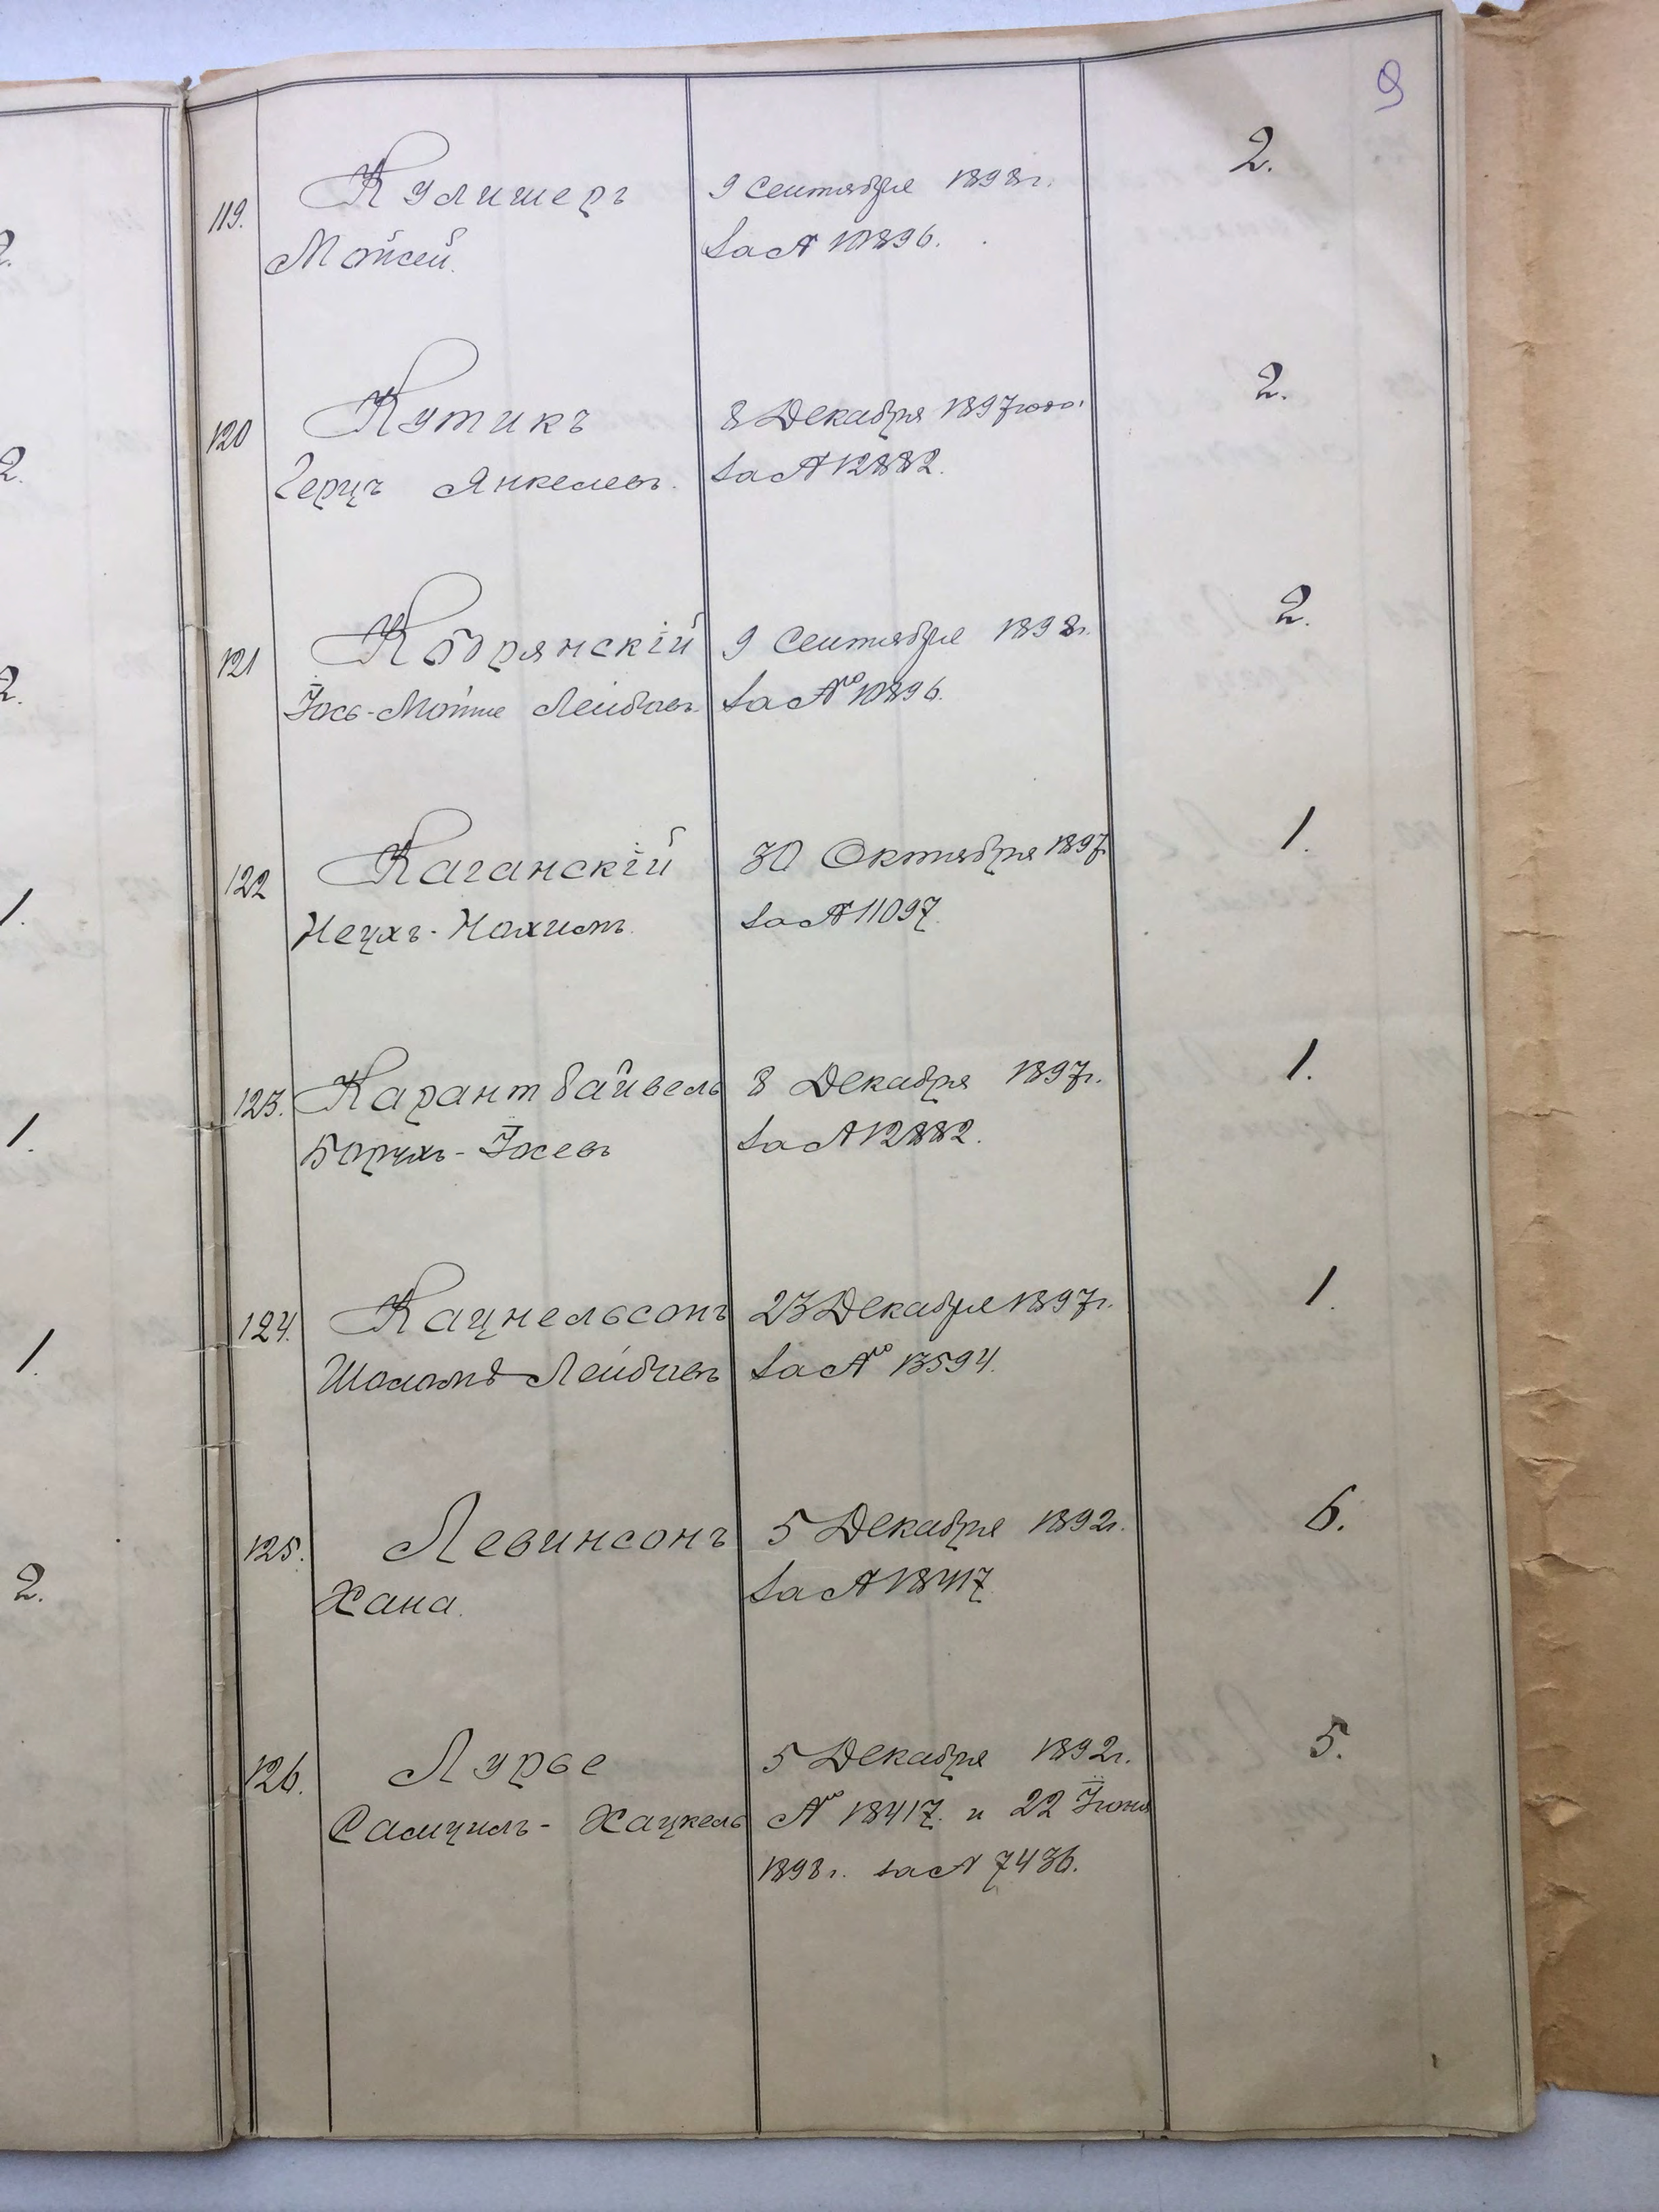 9
119. Кулишеръ 9 Сентября 1898г. 2.
Мойсей. за № 10896.
120 Кутикъ 8 Декабря 1897 года 2.
Герцъ Янкелевъ. за № 12882.
121 Кобрянскій 9 Сентября 1898г. 2.
Іось-Мойше Лейбовъ за № 10896.
122 Каганскій 30 Октября 1897 1.
Нецхъ-Нахимъ. за № 11097.
123. Карантбайвель 8 Декабря 1897г. 1.
Борухъ-Іосевъ за № 12882.
124. Кацнельсонъ 23 Декабря 1897г. 1.
Шоломъ Лейбовъ за № 13594.
125. Левинсонъ 5 Декабря 1892г. 6.
Хана. за № 18417
126. Лурье 5 Декабря 1892г. 5.
Самуилъ-Хацкель № 18417. и 22 Іюня
1898г. за № 7436.
2.
2.
2.
1.
1.
1.
2.